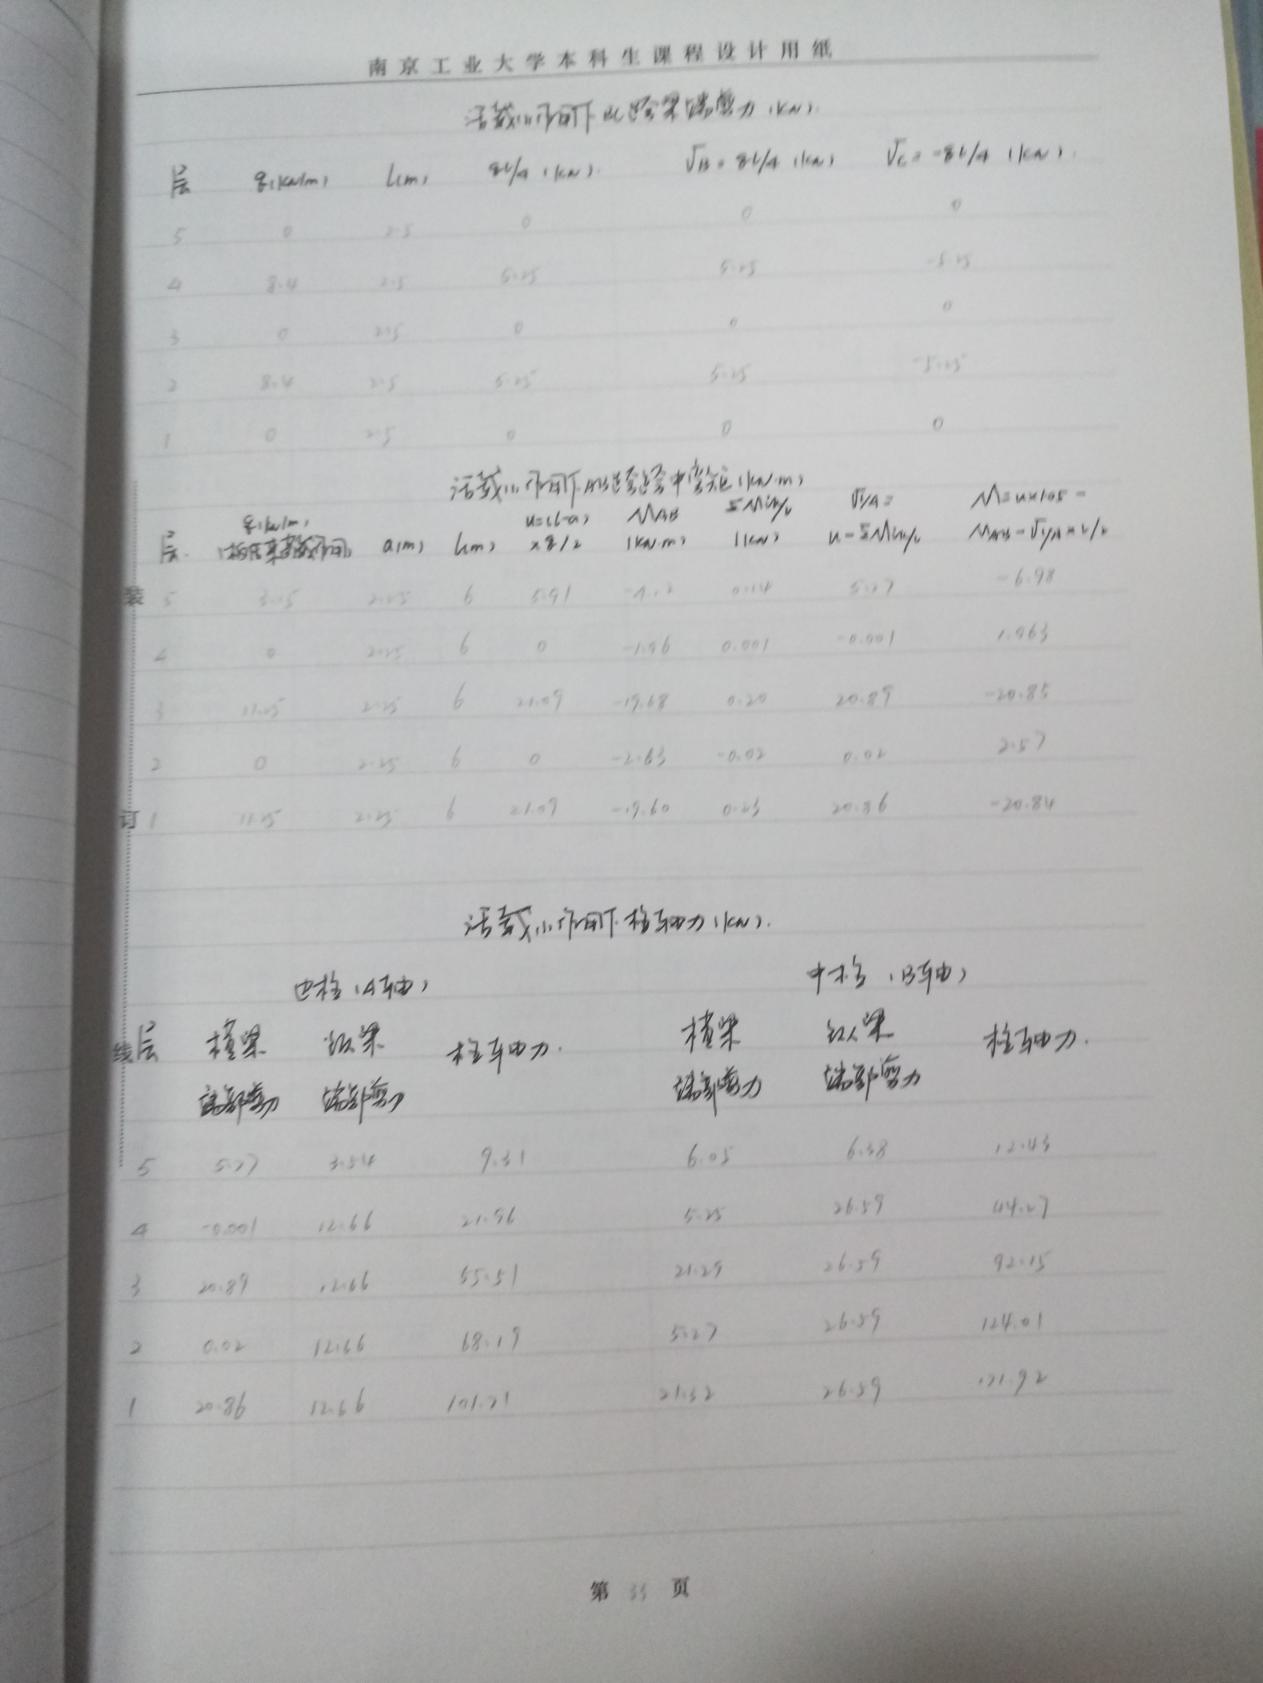 南京工业大学本科生课程设计用纸
活载(1)作用下BC跨梁端剪力(kN).
层 q(kN/m) L(m) ql/4 (kN). VB=ql/4 (kN) VC=-ql/4 (kN).
5 0 2.5 0 0 0
4 8.4 2.5 5.25 5.25 -5.25
3 0 2.5 0 0 0
2 8.4 2.5 5.25 5.25 -5.25
1 0 2.5 0 0 0
活载(1)作用下AB跨跨中弯矩(kN·m)
q(kN/m) u=(l-a) MAB ΣMik/l V1/A= M=u×1.05-
层. (板传来荷载作用) a(m) L(m) ×q/2 (kN·m) (kN) u-ΣMik/l MAB-V1/A×l/2
5 3.15 2.25 6 5.91 0.14 5.77 -6.98
4 0 2.25 6 0 -1.96 0.001 -0.001 1.963
3 11.25 2.25 6 21.09 -19.68 0.20 20.89 -20.85
2 0 2.25 6 0 -2.63 -0.02 0.02 2.57
1 11.25 2.25 6 21.09 -19.60 0.23 20.86 -20.84
活载(1)作用下柱轴力(kN).
边柱(A轴) 中柱(B轴)
层 横梁 纵梁 柱轴力. 横梁 纵梁 柱轴力.
端部剪力 端部剪力 端部剪力 端部剪力
5 5.77 3.54 9.31 6.05 6.38 12.43
4 -0.001 12.66 21.96 5.25 26.59 44.27
3 20.89 12.66 55.51 21.29 26.59 92.15
2 0.02 12.66 68.19 5.27 26.59 124.01
1 20.86 12.66 101.71 21.32 26.59 171.92
装
订
线
第 33 页